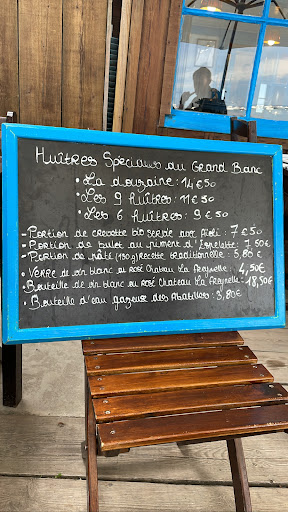 Huîtres Spéciales du Grand Banc
• La douzaine : 14 € 50
• Les 9 huîtres : 11 € 50
• Les 6 huîtres : 9 € 50
- Portion de crevette bio servie avec : 7 € 50
- Portion de bulot au piment d'Espelette : 7,50€
- Portion de pâté (190g) Recette traditionnelle : 5,80 €
• Verre de vin blanc ou rosé Chateau La Freynelle : 4,50€
• Bouteille de vin blanc ou rosé Chateau La Freynelle : 18,50€
• Bouteille d'eau gazeuse des Abatilles : 3,80€